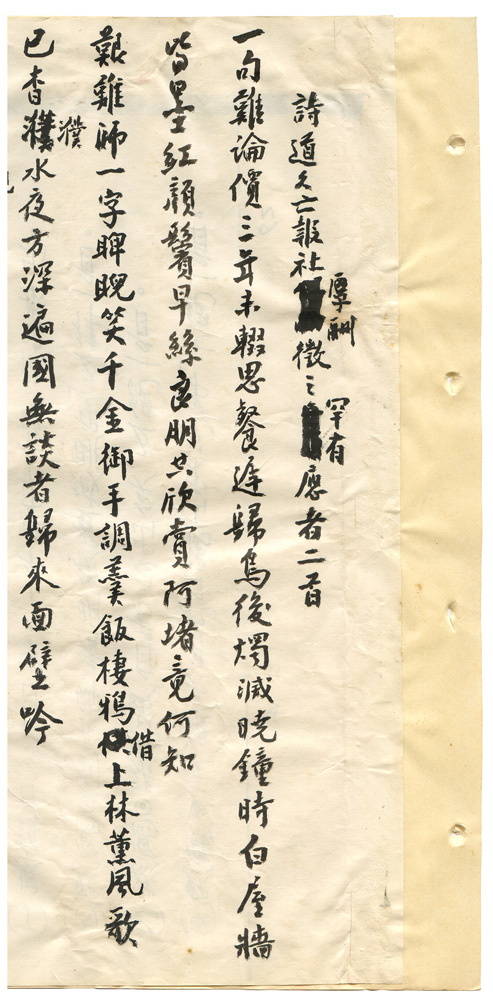 詩道久亡報社厚酬徵之罕有應者二首
一句難論價三年未輟思餐遲歸鳥後燭滅曉鐘時白屋牆
皆墨紅顏鬢早絲良朋共欣賞阿堵竟何知
艱難師一字睥睨笑千金御手調羹飯棲鴉借上林薰風歌
已杳濮水夜方深遍國無談者歸來面壁吟